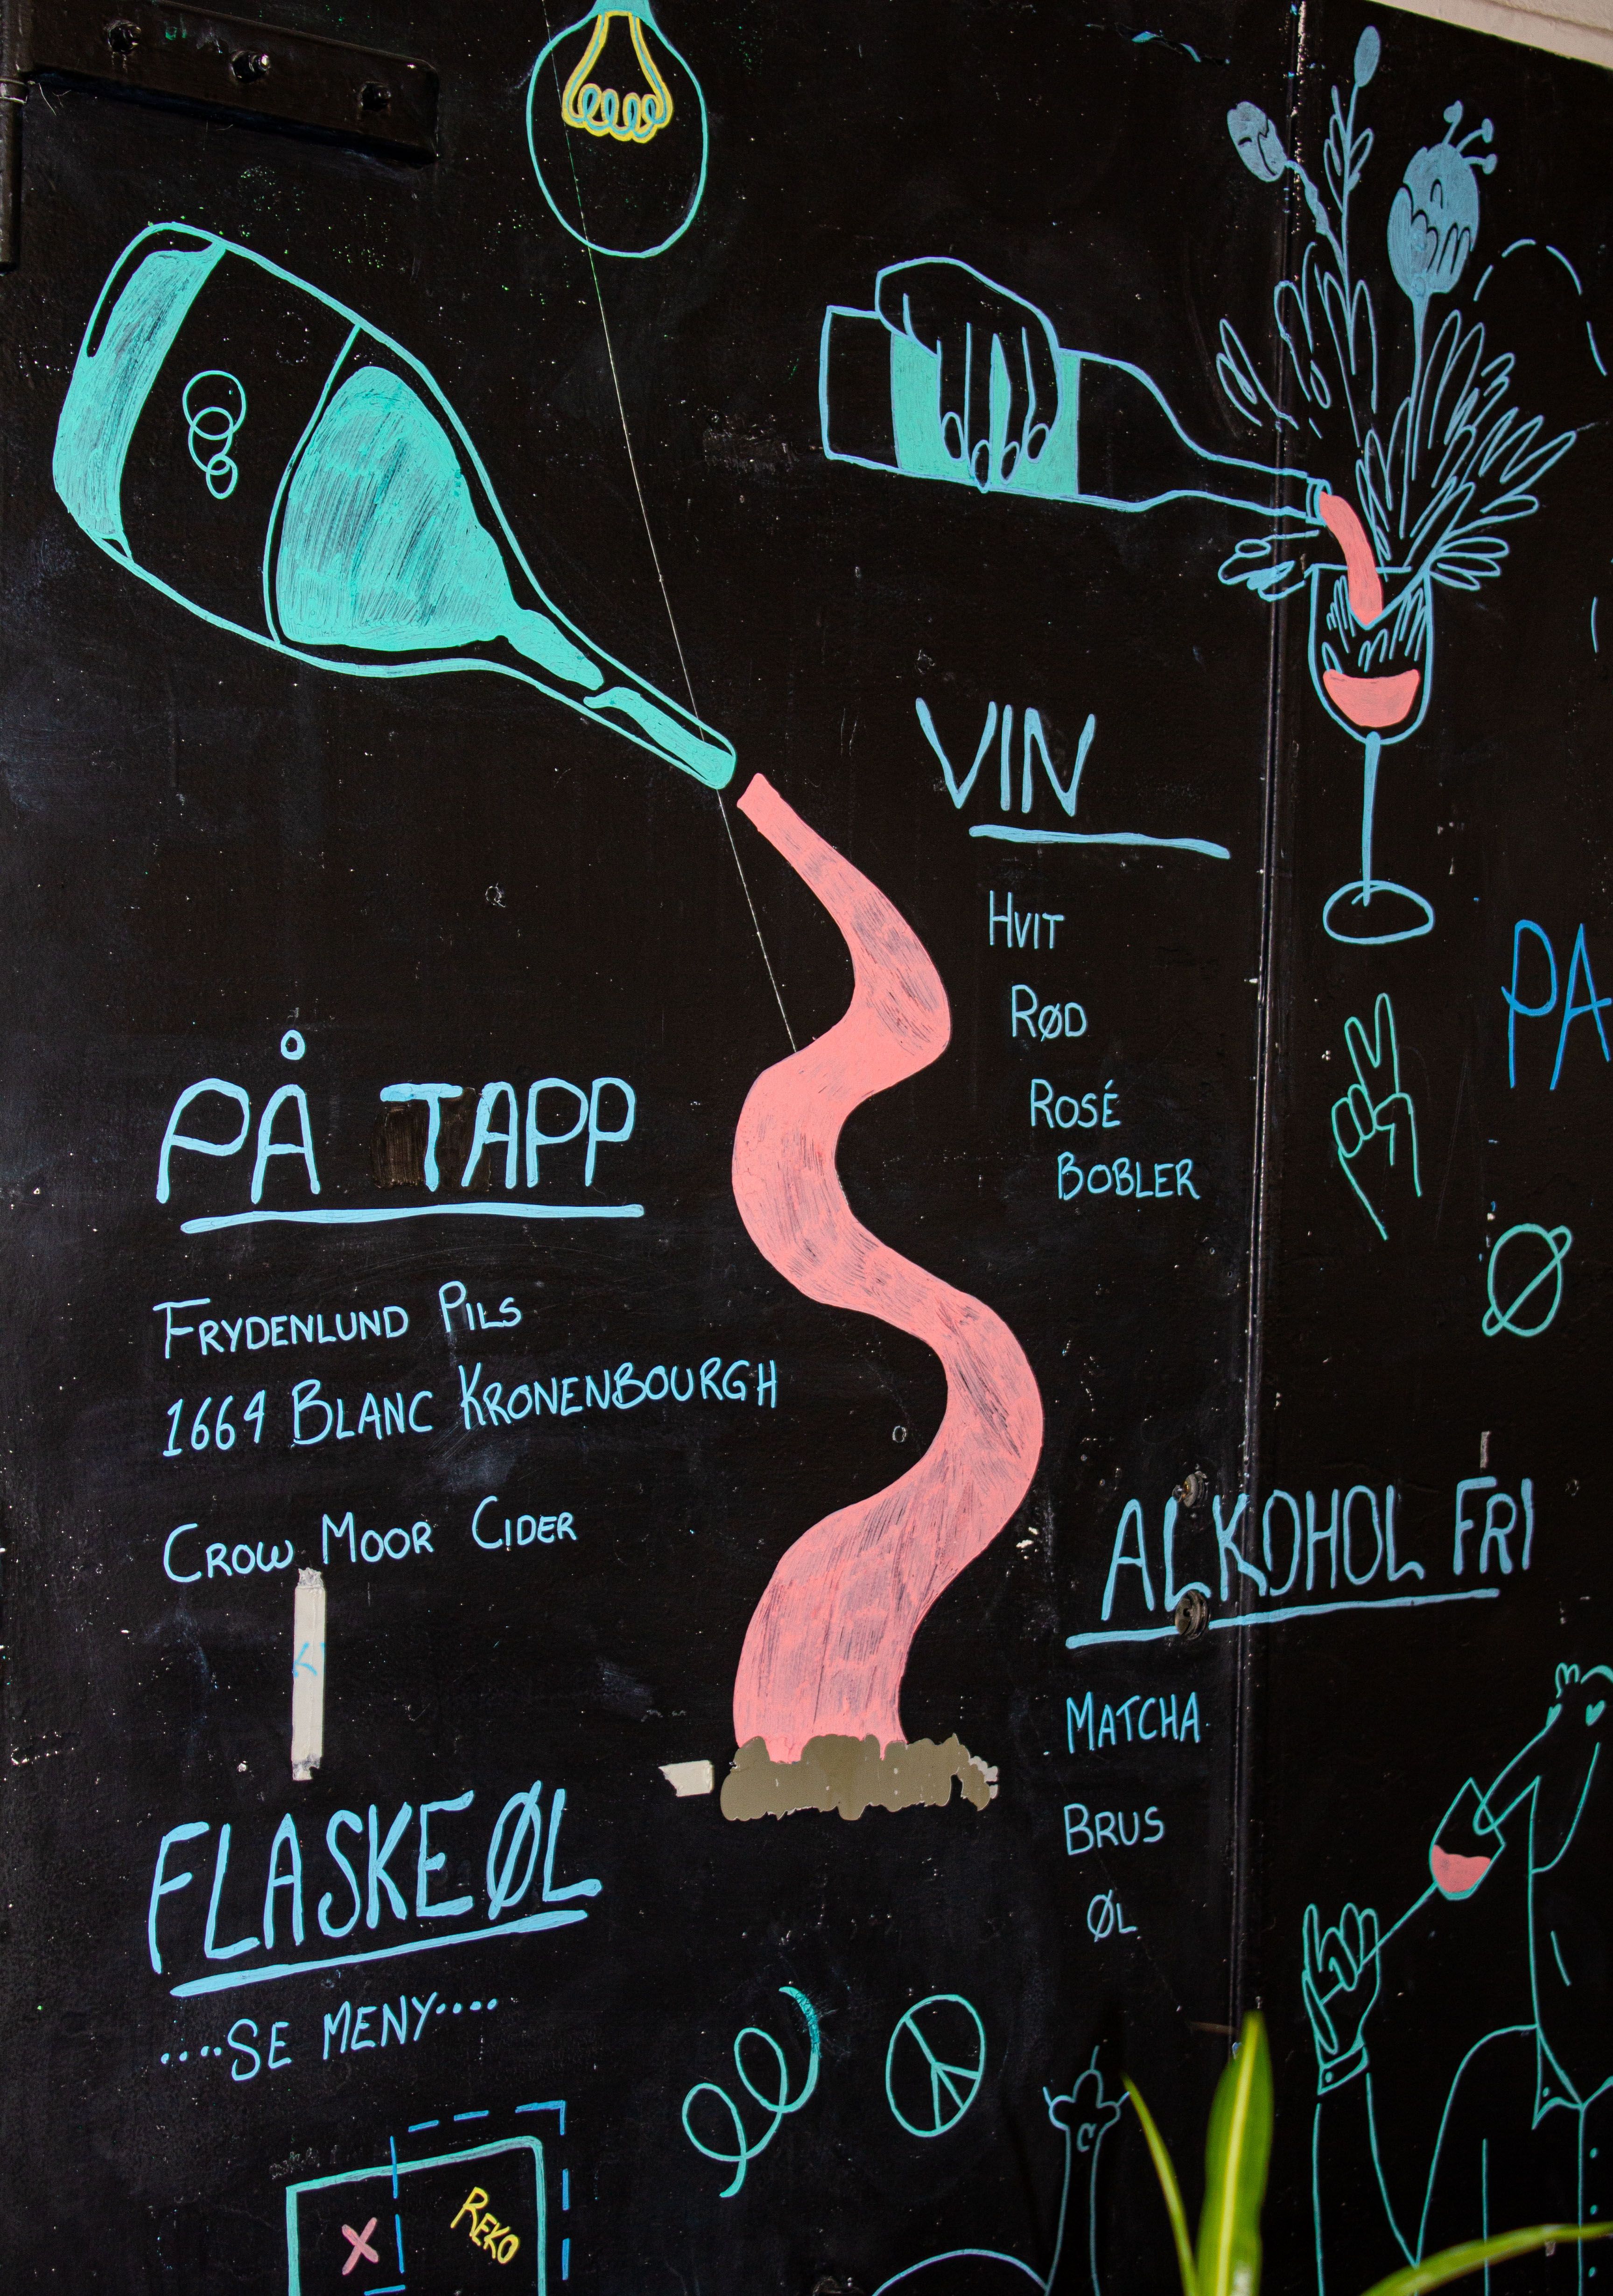 VIN
HVIT
RØD
ROSÉ
BOBLER
PÅ TAPP
FRYDENLUND PILS
1664 BLANC KRONENBOURGH
CROW MOOR CIDER
FLASKEØL
....SE MENY....
REKO
X
ALKOHOL FRI
MATCHA
BRUS
ØL
PA
Ø